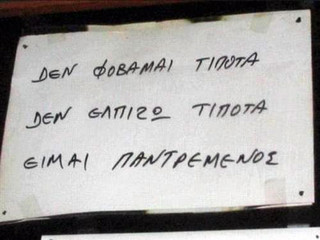 ΔΕΝ ΦΟΒΑΜΑΙ ΤΙΠΟΤΑ
ΔΕΝ ΕΛΠΙΖΩ ΤΙΠΟΤΑ
ΕΙΜΑΙ ΠΑΝΤΡΕΜΕΝΟΣ